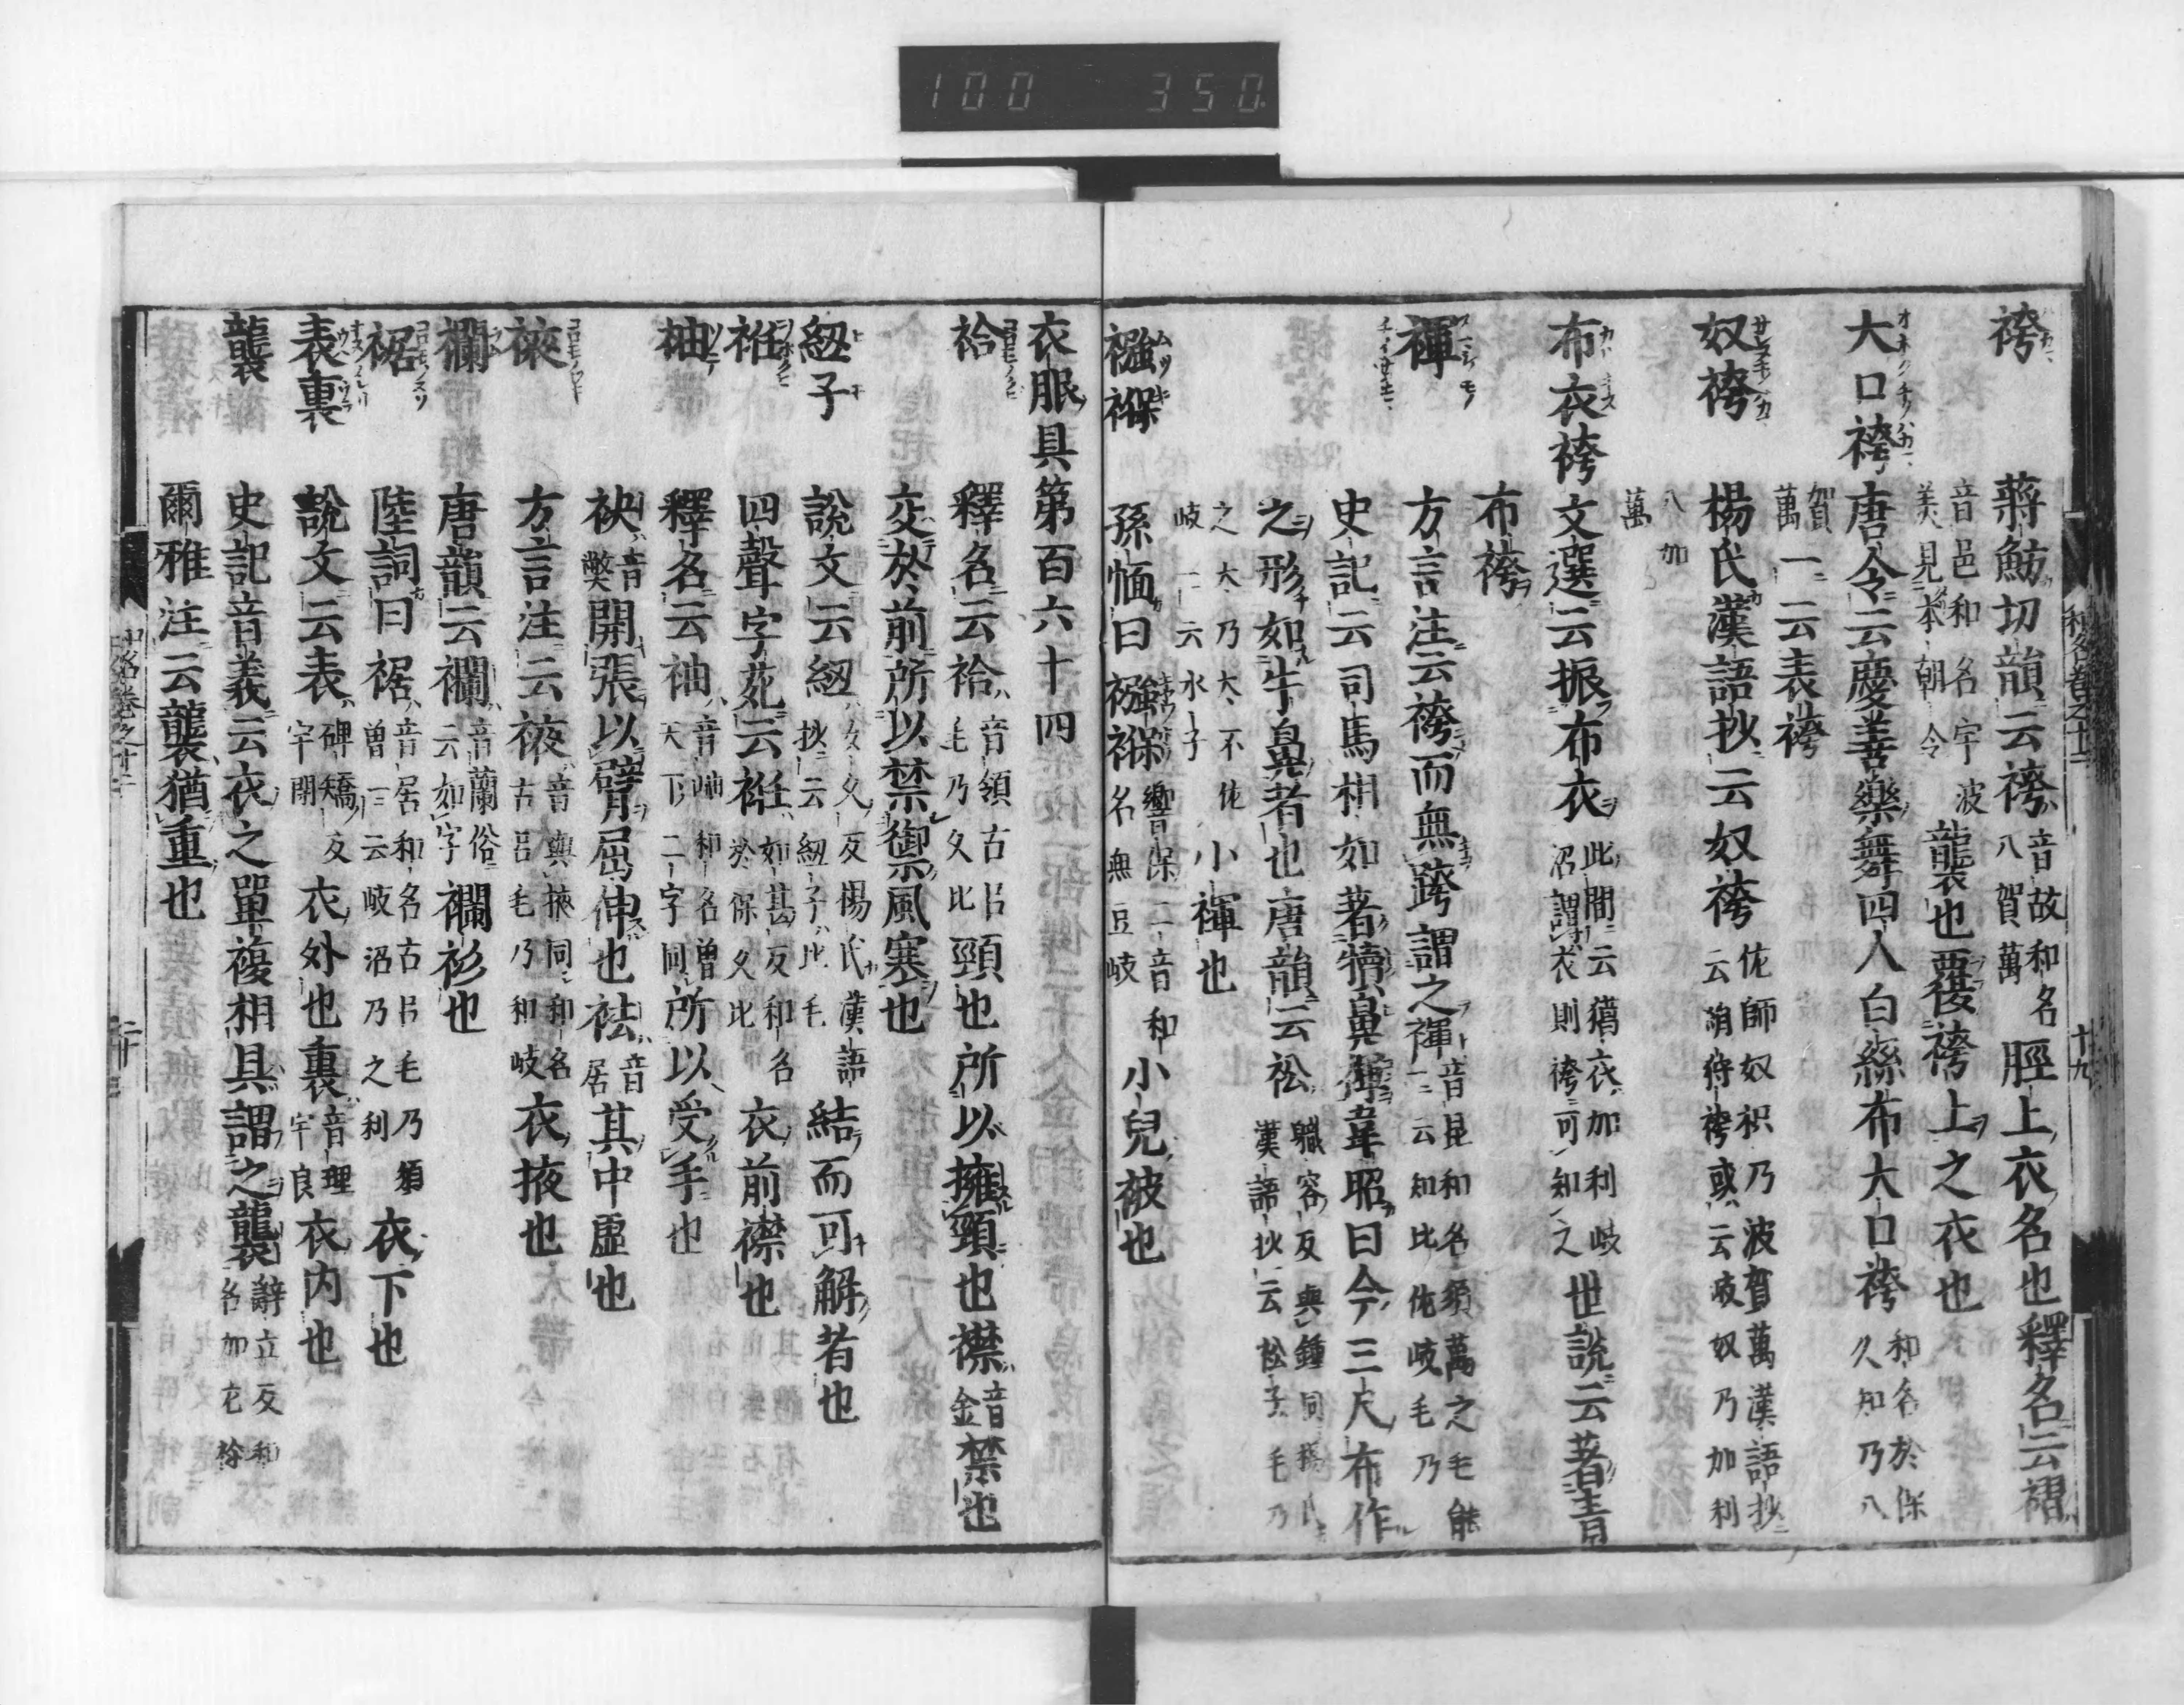 100 350
袴 蔣魴切韻云袴音故和名八賀萬脛上衣名也釋名云褶
音邑和名宇波美見本朝令襲也覆袴上之衣也
大口袴 唐令云慶善樂舞四人白絲布大口袴和名於保久知乃八
賀萬一云表袴
奴袴 楊氏漢語抄云奴袴佐師奴枳乃波賀萬漢語抄云絹狩袴或云岐奴乃加利
八加萬
布衣袴 文選云振布衣此間云獦衣加利岐沼謂衣則袴可知之世說云著青
布袴
褌 方言注云袴而無跨謂之褌音昆和名須萬之毛能一云知比佐岐毛乃
史記云司馬相如著犢鼻褌韋昭曰今三尺布作
之形如牛鼻者也唐韻云衳職容反與鍾同楊氏漢語抄云衳子毛乃
之太乃太不佐岐一云水子小褌也
襁褓 孫愐曰襁褓響保二音和名無豆岐小兒被也
和名卷之十二 十九
衣服具第百六十四
衿 釋名云衿音領古呂毛乃久比頸也所以擁頸也襟音金禁也
交於前所以禁御風寒也
紐子 說文云紐女久反楊氏漢語抄云紐子比毛結而可解者也
衽 四聲字苑云衽如甚反和名於保久比衣前襟也
袖 釋名云袖音岫和名曾天下二字同所以受手也
袂音弊開張以臂屈伸也袪音居其中虛也
𧙃 方言注云𧙃音與掖同和名古呂毛乃和岐衣掖也
襴 唐韻云襴音蘭俗云如字襴衫也
裾 陸詞曰裾音居和名古呂毛乃須曾一云岐沼乃之利衣下也
表裏 說文云表碑矯反宇閇衣外也裏音理宇良衣内也
襲 史記音義云衣之單複相具謂之襲辭立反和名加佐称
爾雅注云襲猶重也
和名卷之十二 二十